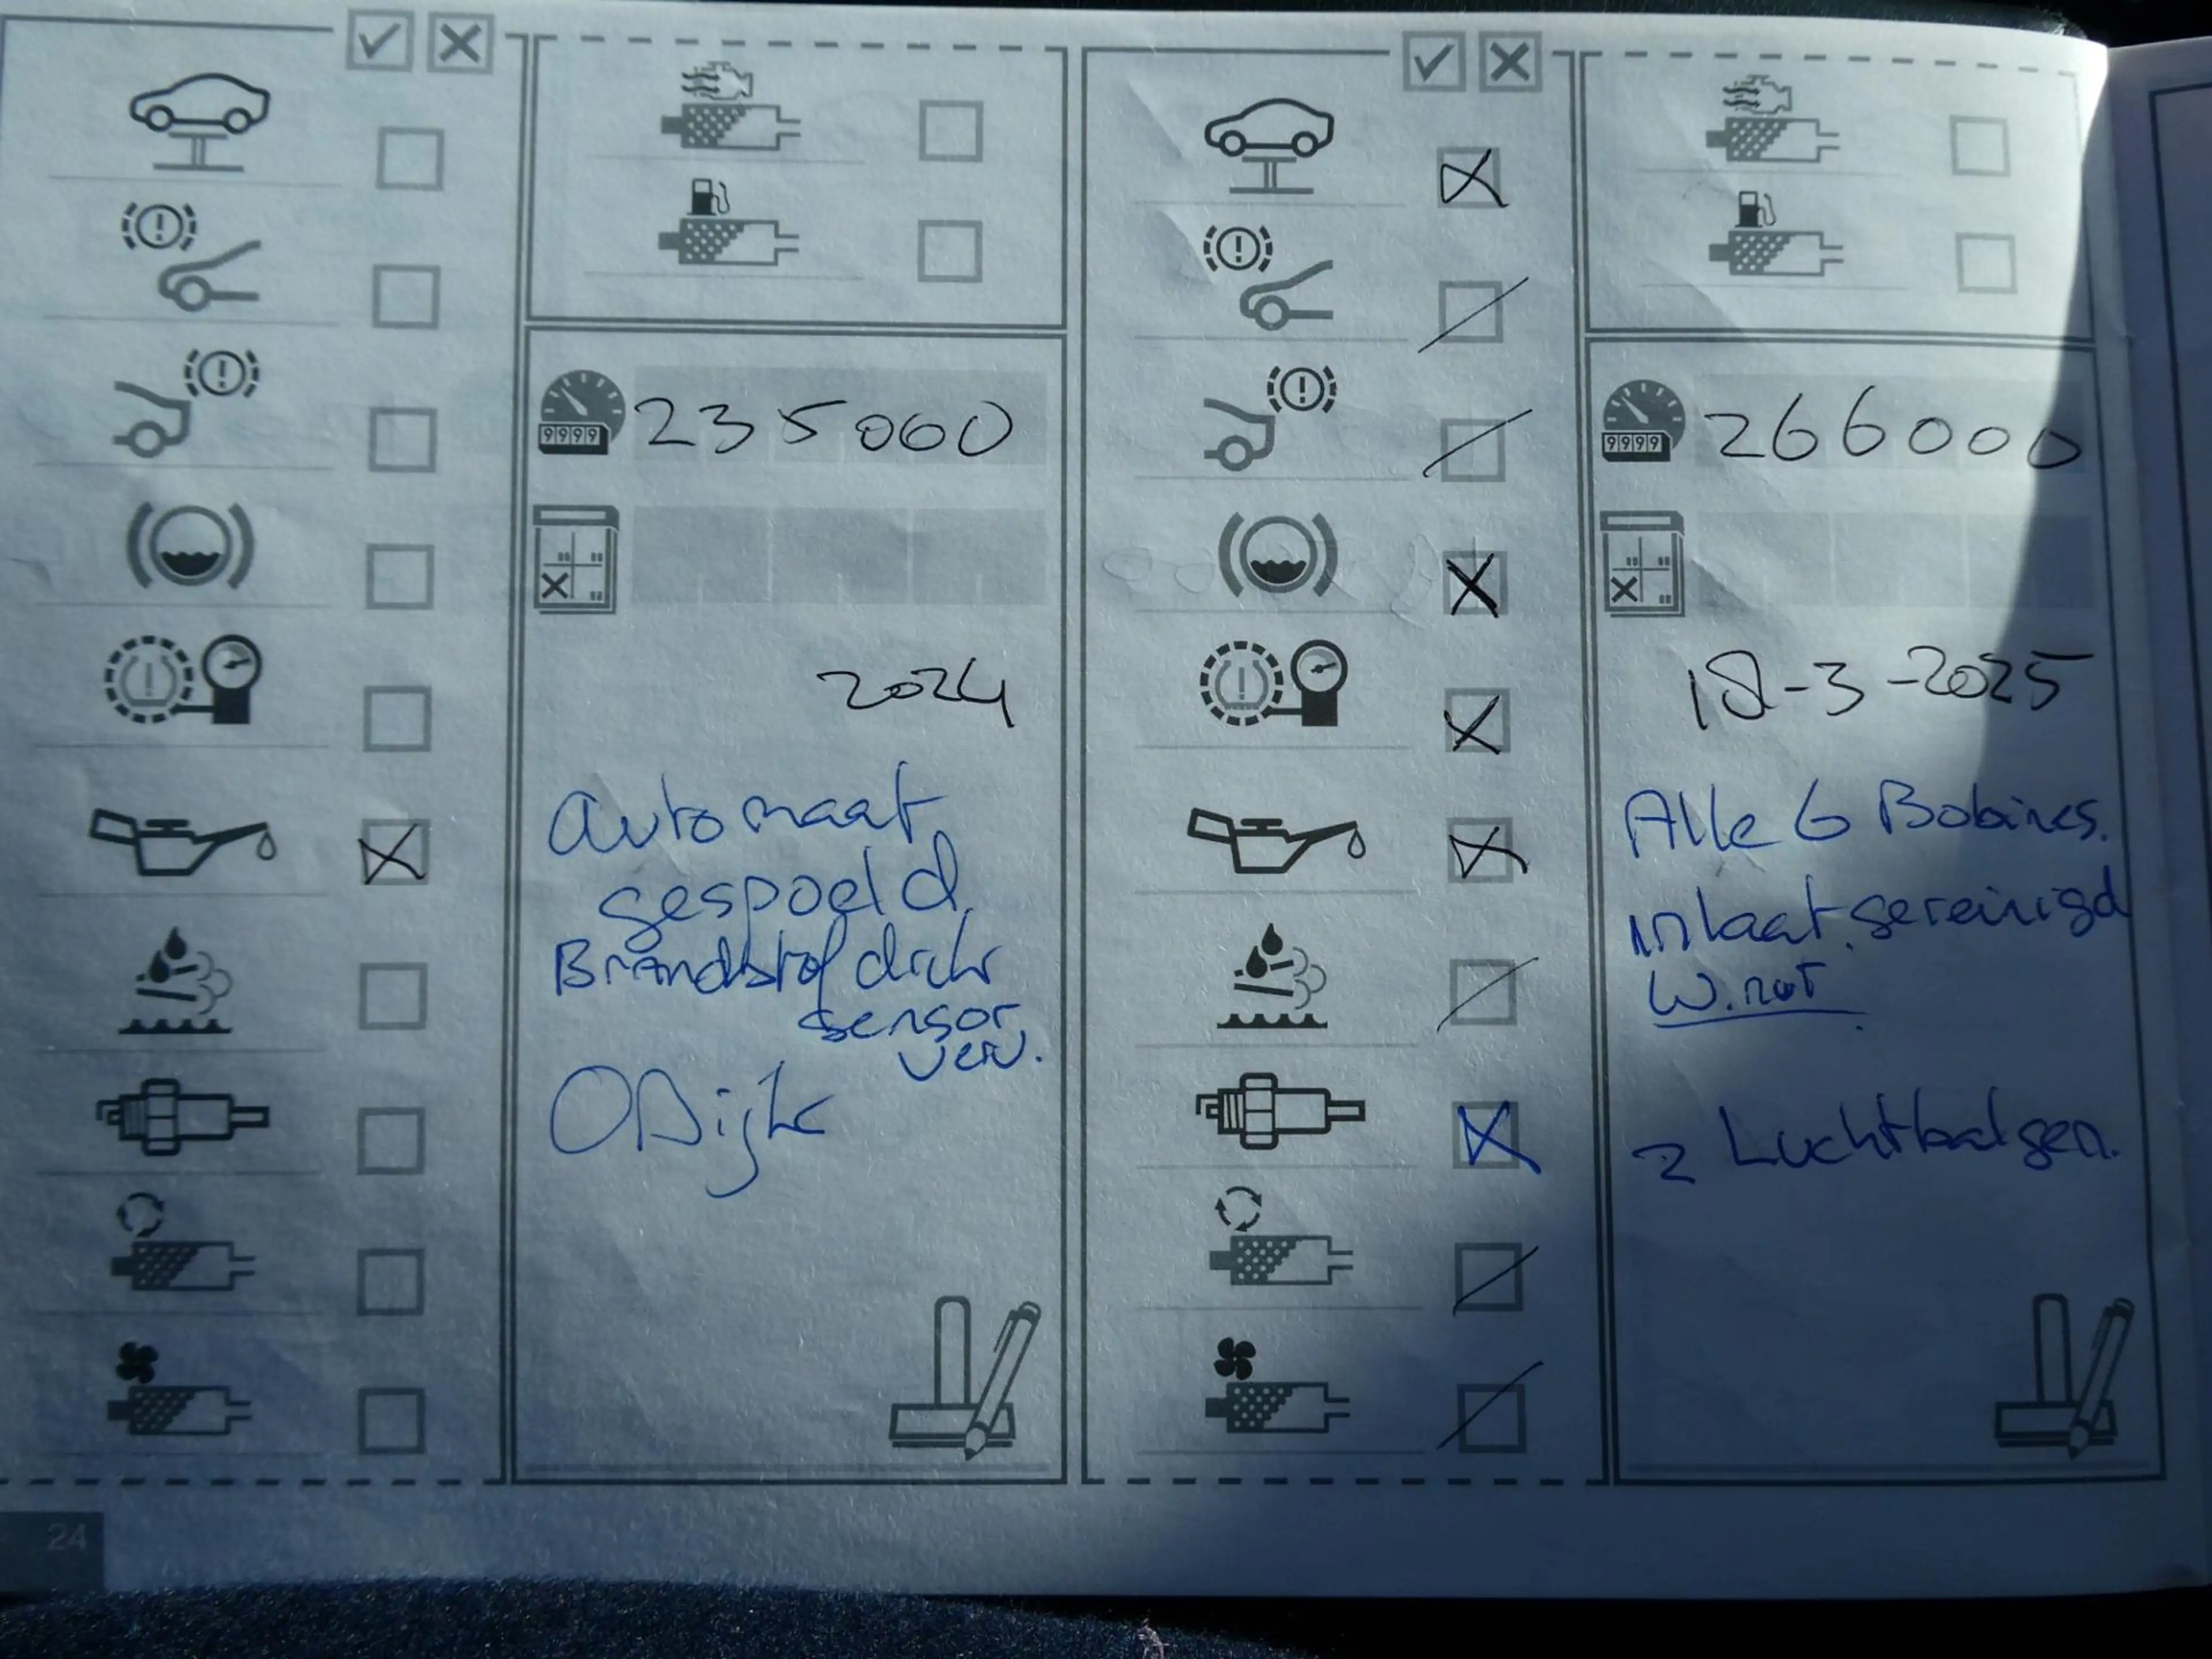 235000
9999
2024
Automaat
gespoeld
Brandstof druk
sensor
verv.
ODijk
266000
9999
18-3-2025
Alle 6 Bobines.
inlaat gereinigd
2 Luchtbalgen.
24